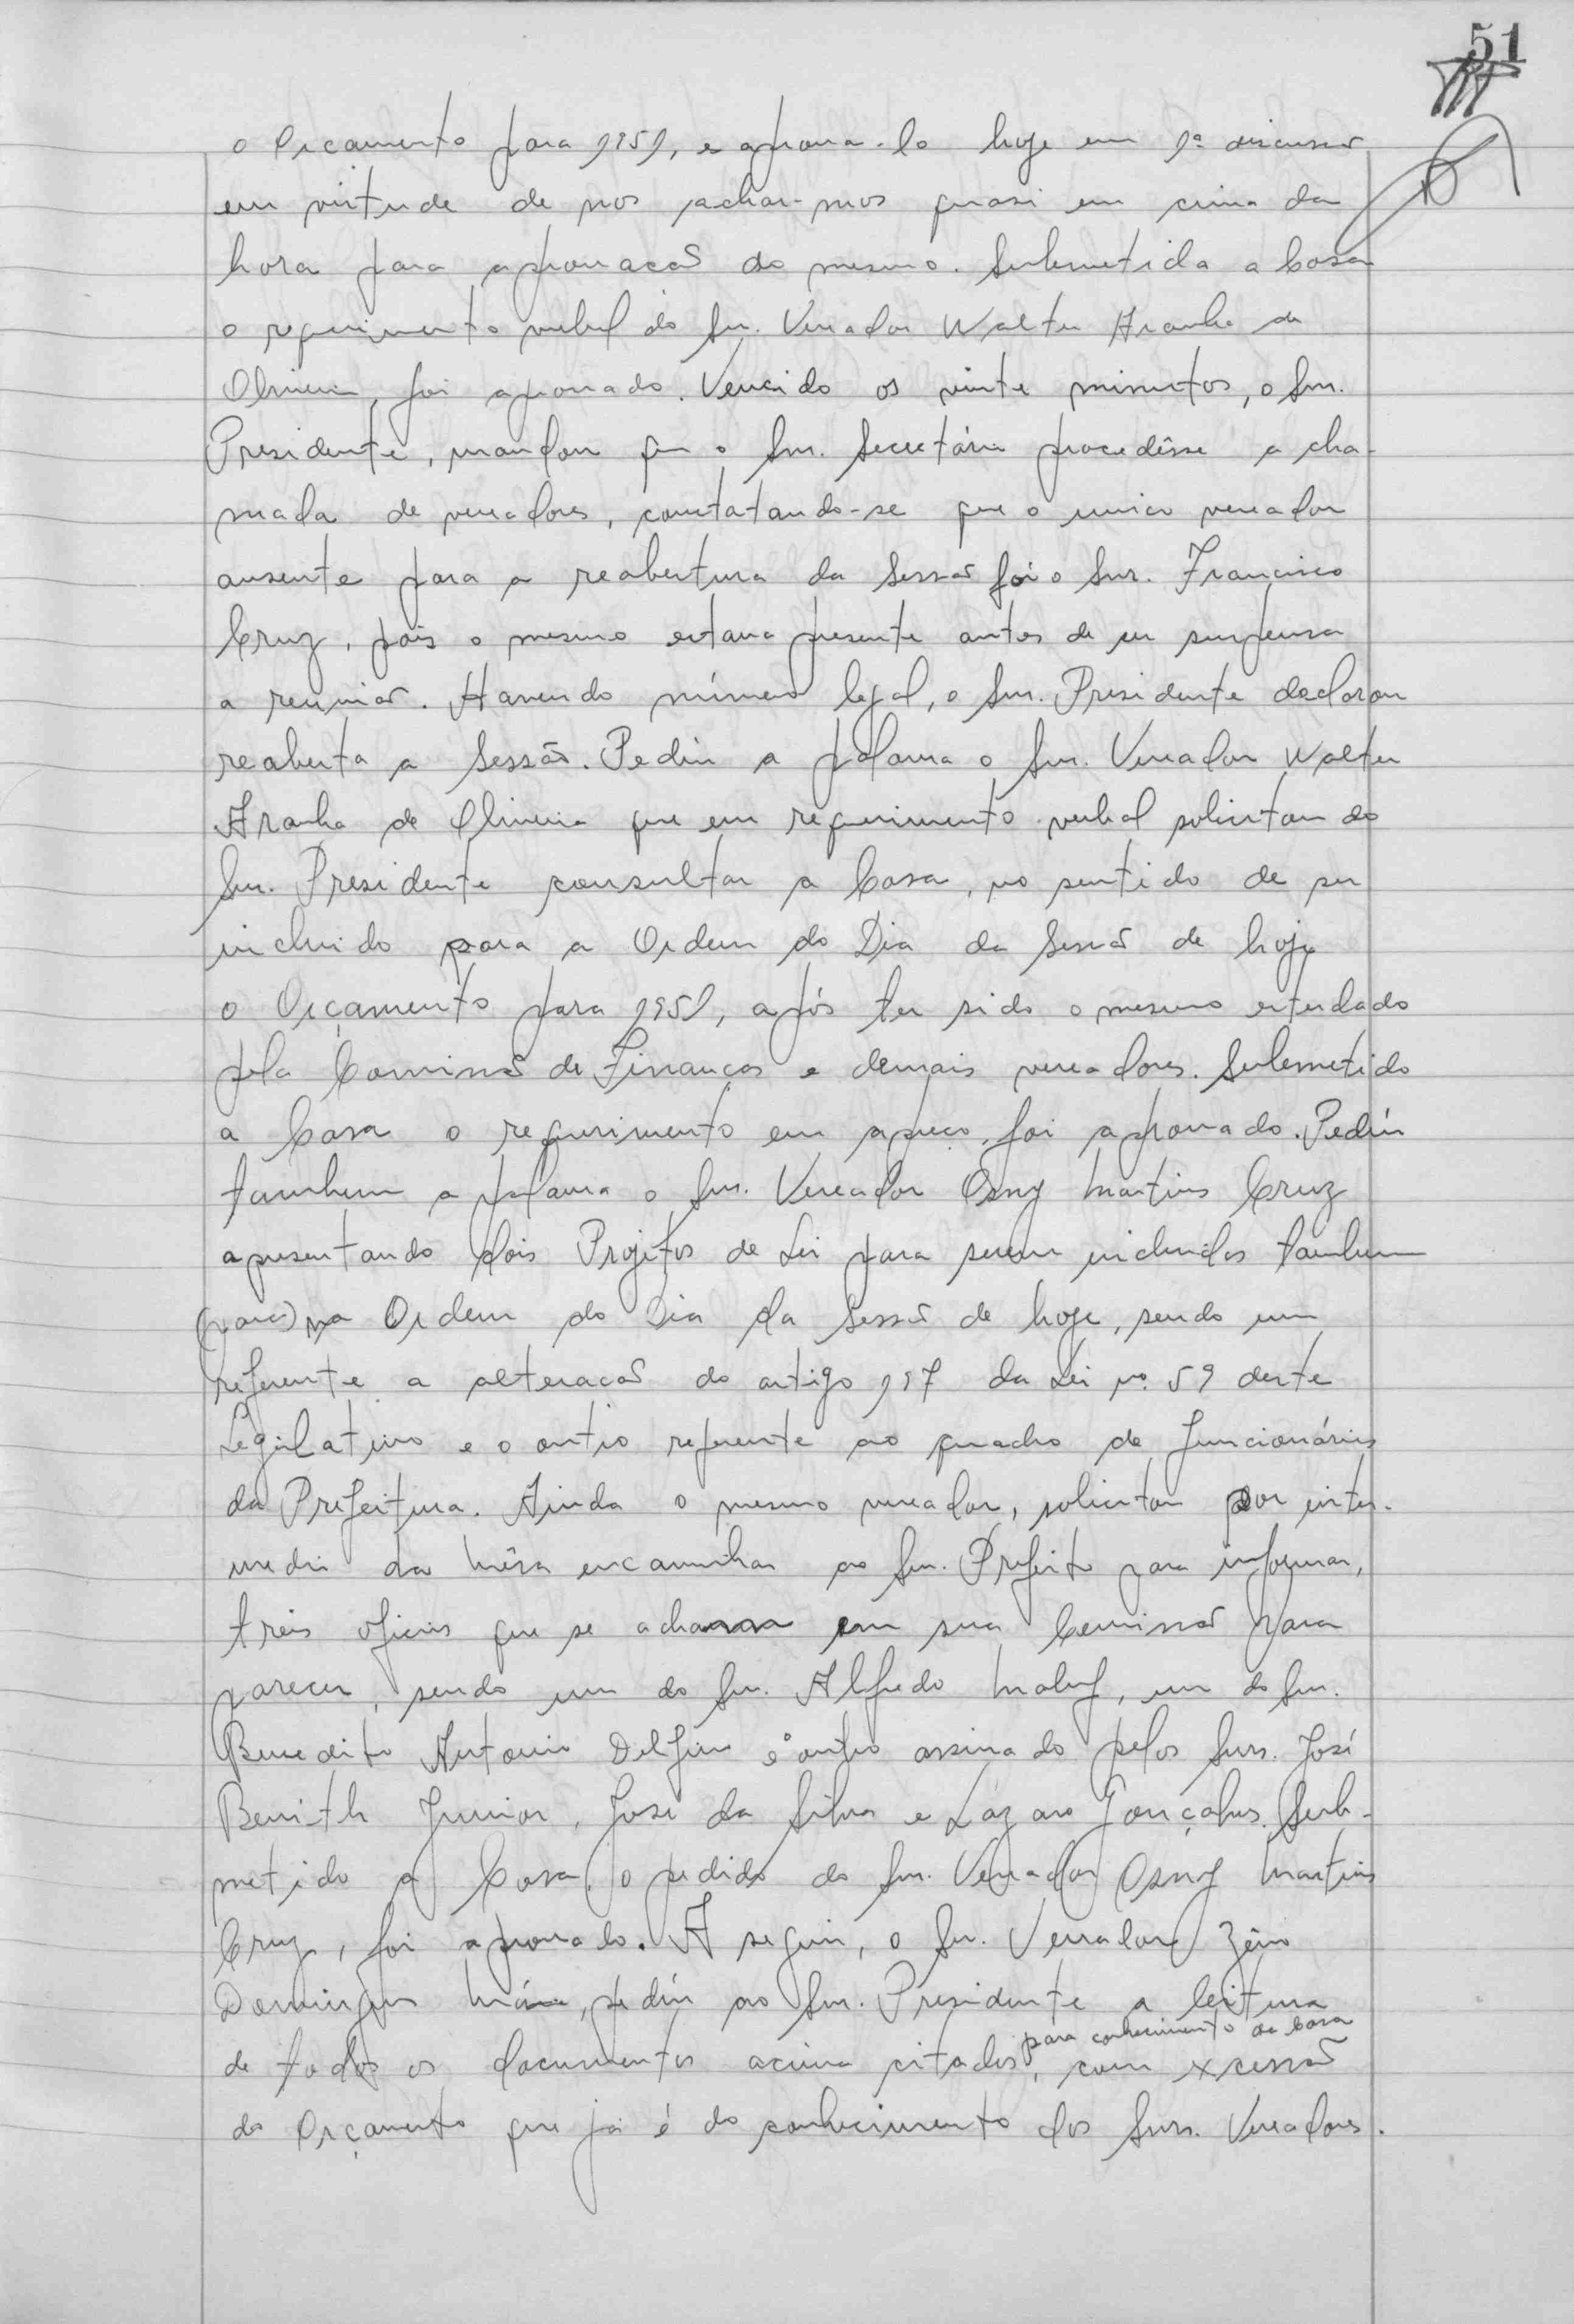 51
o Orcamento para 1951, e aprova-lo hoje em 1ª discussão
em virtude de nos achar-mos quasi em cima da
hora para aprovacão do mesmo. Submetida a Casa
o requerimento verbal do Snr. Vereador Walter Aranha de
Oliveira, foi aprovado. Vencido os vinte minutos, o Snr.
Presidente, mandou que o Snr. Secretário procedêsse a cha-
mada de vereadores, constatando-se que o unico vereador
ausente para a reabertura da Sessão foi o Snr. Francisco
Cruz, pois o mesmo estava presente antes de ser suspensa
a reunião. Havendo número legal, o Snr. Presidente declarou
reaberta a Sessão. Pediu a palavra o Snr. Vereador Walter
Aranha de Oliveira que em requerimento verbal solicitou do
Snr. Presidente consultar a Casa, no sentido de ser
incluido para a Ordem do Dia da Sessão de hoje
o Orçamento para 1951, após ter sido o mesmo estudado
pela Comissão de Financas e demais vereadores. Submetido
a Casa o requerimento em apreço, foi aprovado. Pediu
tambem a palavra o Snr. Vereador Osny Martins Cruz
apresentando dois Projetos de Lei para serem incluidos tambem
(para) na Ordem do Dia da Sessão de hoje, sendo um
referente a alteracão do artigo 197 da Lei nº 59 deste
Legislativo e o outro referente ao quadro de funcionários
da Prefeitura. Ainda o mesmo vereador, solicitou por inter-
medio da Mêsa encaminhar ao Snr. Prefeito para informar,
três oficios que se achavam em sua Comissão para
parecer, sendo um do Snr. Alfredo Maluf, um do Snr.
Benedito Antonio Delfim e o outro assinado pelos Snrs. José
Benith Junior, José da Silva e Lázaro Gonçalves. Sub-
metido a Casa, o pedido do Snr. Vereador Osny Martins
Cruz, foi aprovado. A seguir, o Snr. Vereador Zêno
Domingues, pediu ao Snr. Presidente a leitura
para conhecimento da Casa
de todos os documentos acima citados, com excessão
do Orçamento que já é do conhecimento dos Snrs. Vereadores.